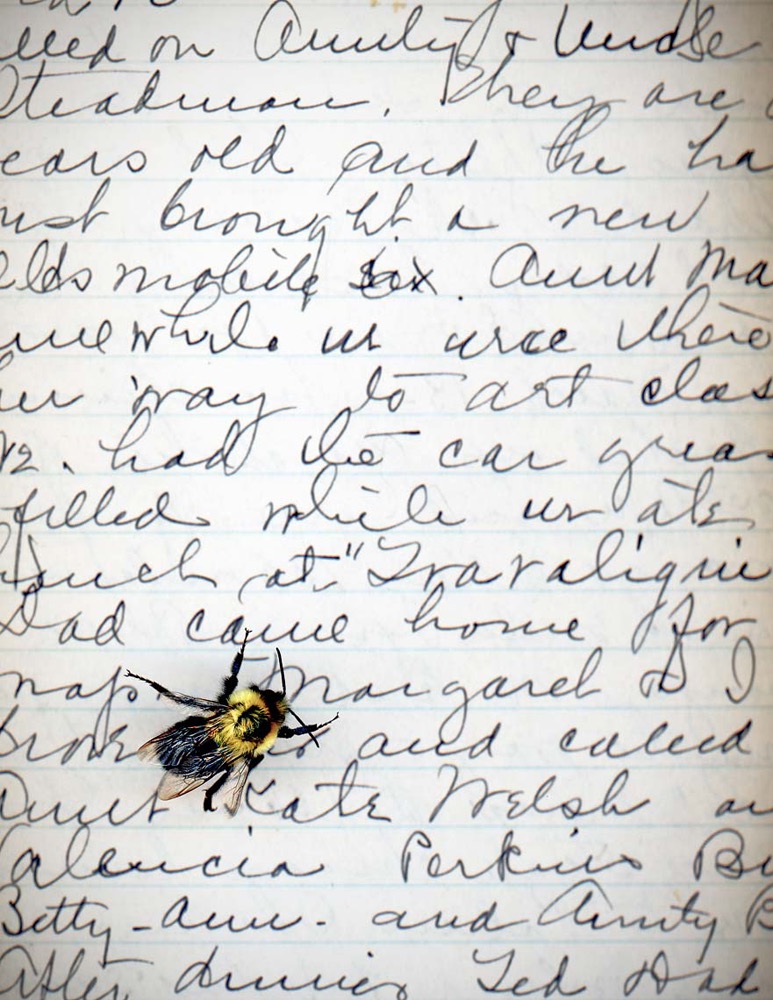 lled on Aunty & Uncle
Steadman. They are
ears old and he ha
ust brought a new
lds mobile six. Aunt Ma
ame while we were there
her way to art clas
12. had the car greas
filled while we ate
lunch at "Travaligni
Dad came home for
nap Margaret & I
drove and called
Aunt Kate Welsh an
Valencia Perkins Bu
Betty-Ann- and Aunty B
After dinner Ted Dad